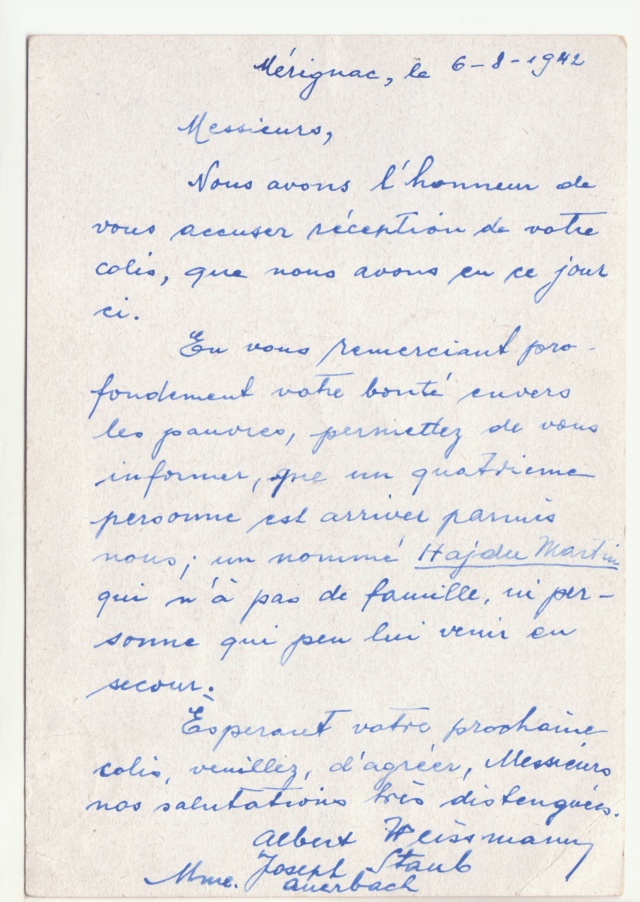 Mérignac, le 6-8-1942
Messieurs,
Nous avons l'honneur de
vous accuser réception de votre
colis, que nous avons eu ce jour
ci.
En vous remerciant pro-
fondement votre bonté envers
les pauvres, permettez de vous
informer, que un quatrieme
personne est arriver parmis
nous; un nommé Hajdu Martin
qui n'à pas de famille, ni per-
sonne qui peu lui venir en
secour.
Esperant votre prochaine
colis, veuillez, d'agréer, Messieurs
nos salutations très distenguées.
Albert Weissmann
Joseph Staub
Mme. Auerbach